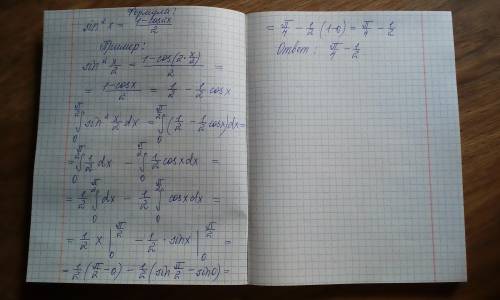 Формула:
sin² x = (1-cos2x)/2
Пример:
sin² x/2 = (1-cos(2·x/2))/2 =
= (1-cosx)/2 = 1/2 - 1/2 cosx
∫₀^(π/2) sin² x/2 dx = ∫₀^(π/2) (1/2 - 1/2 cosx)dx =
= ∫₀^(π/2) 1/2 dx - ∫₀^(π/2) 1/2 cosxdx =
= 1/2 ∫₀^(π/2) dx - 1/2 ∫₀^(π/2) cosxdx =
= 1/2 x |₀^(π/2) - 1/2 · sinx |₀^(π/2) =
= 1/2 (π/2 - 0) - 1/2 (sin π/2 - sin0) =
= π/4 - 1/2 (1-0) = π/4 - 1/2
Ответ: π/4 - 1/2